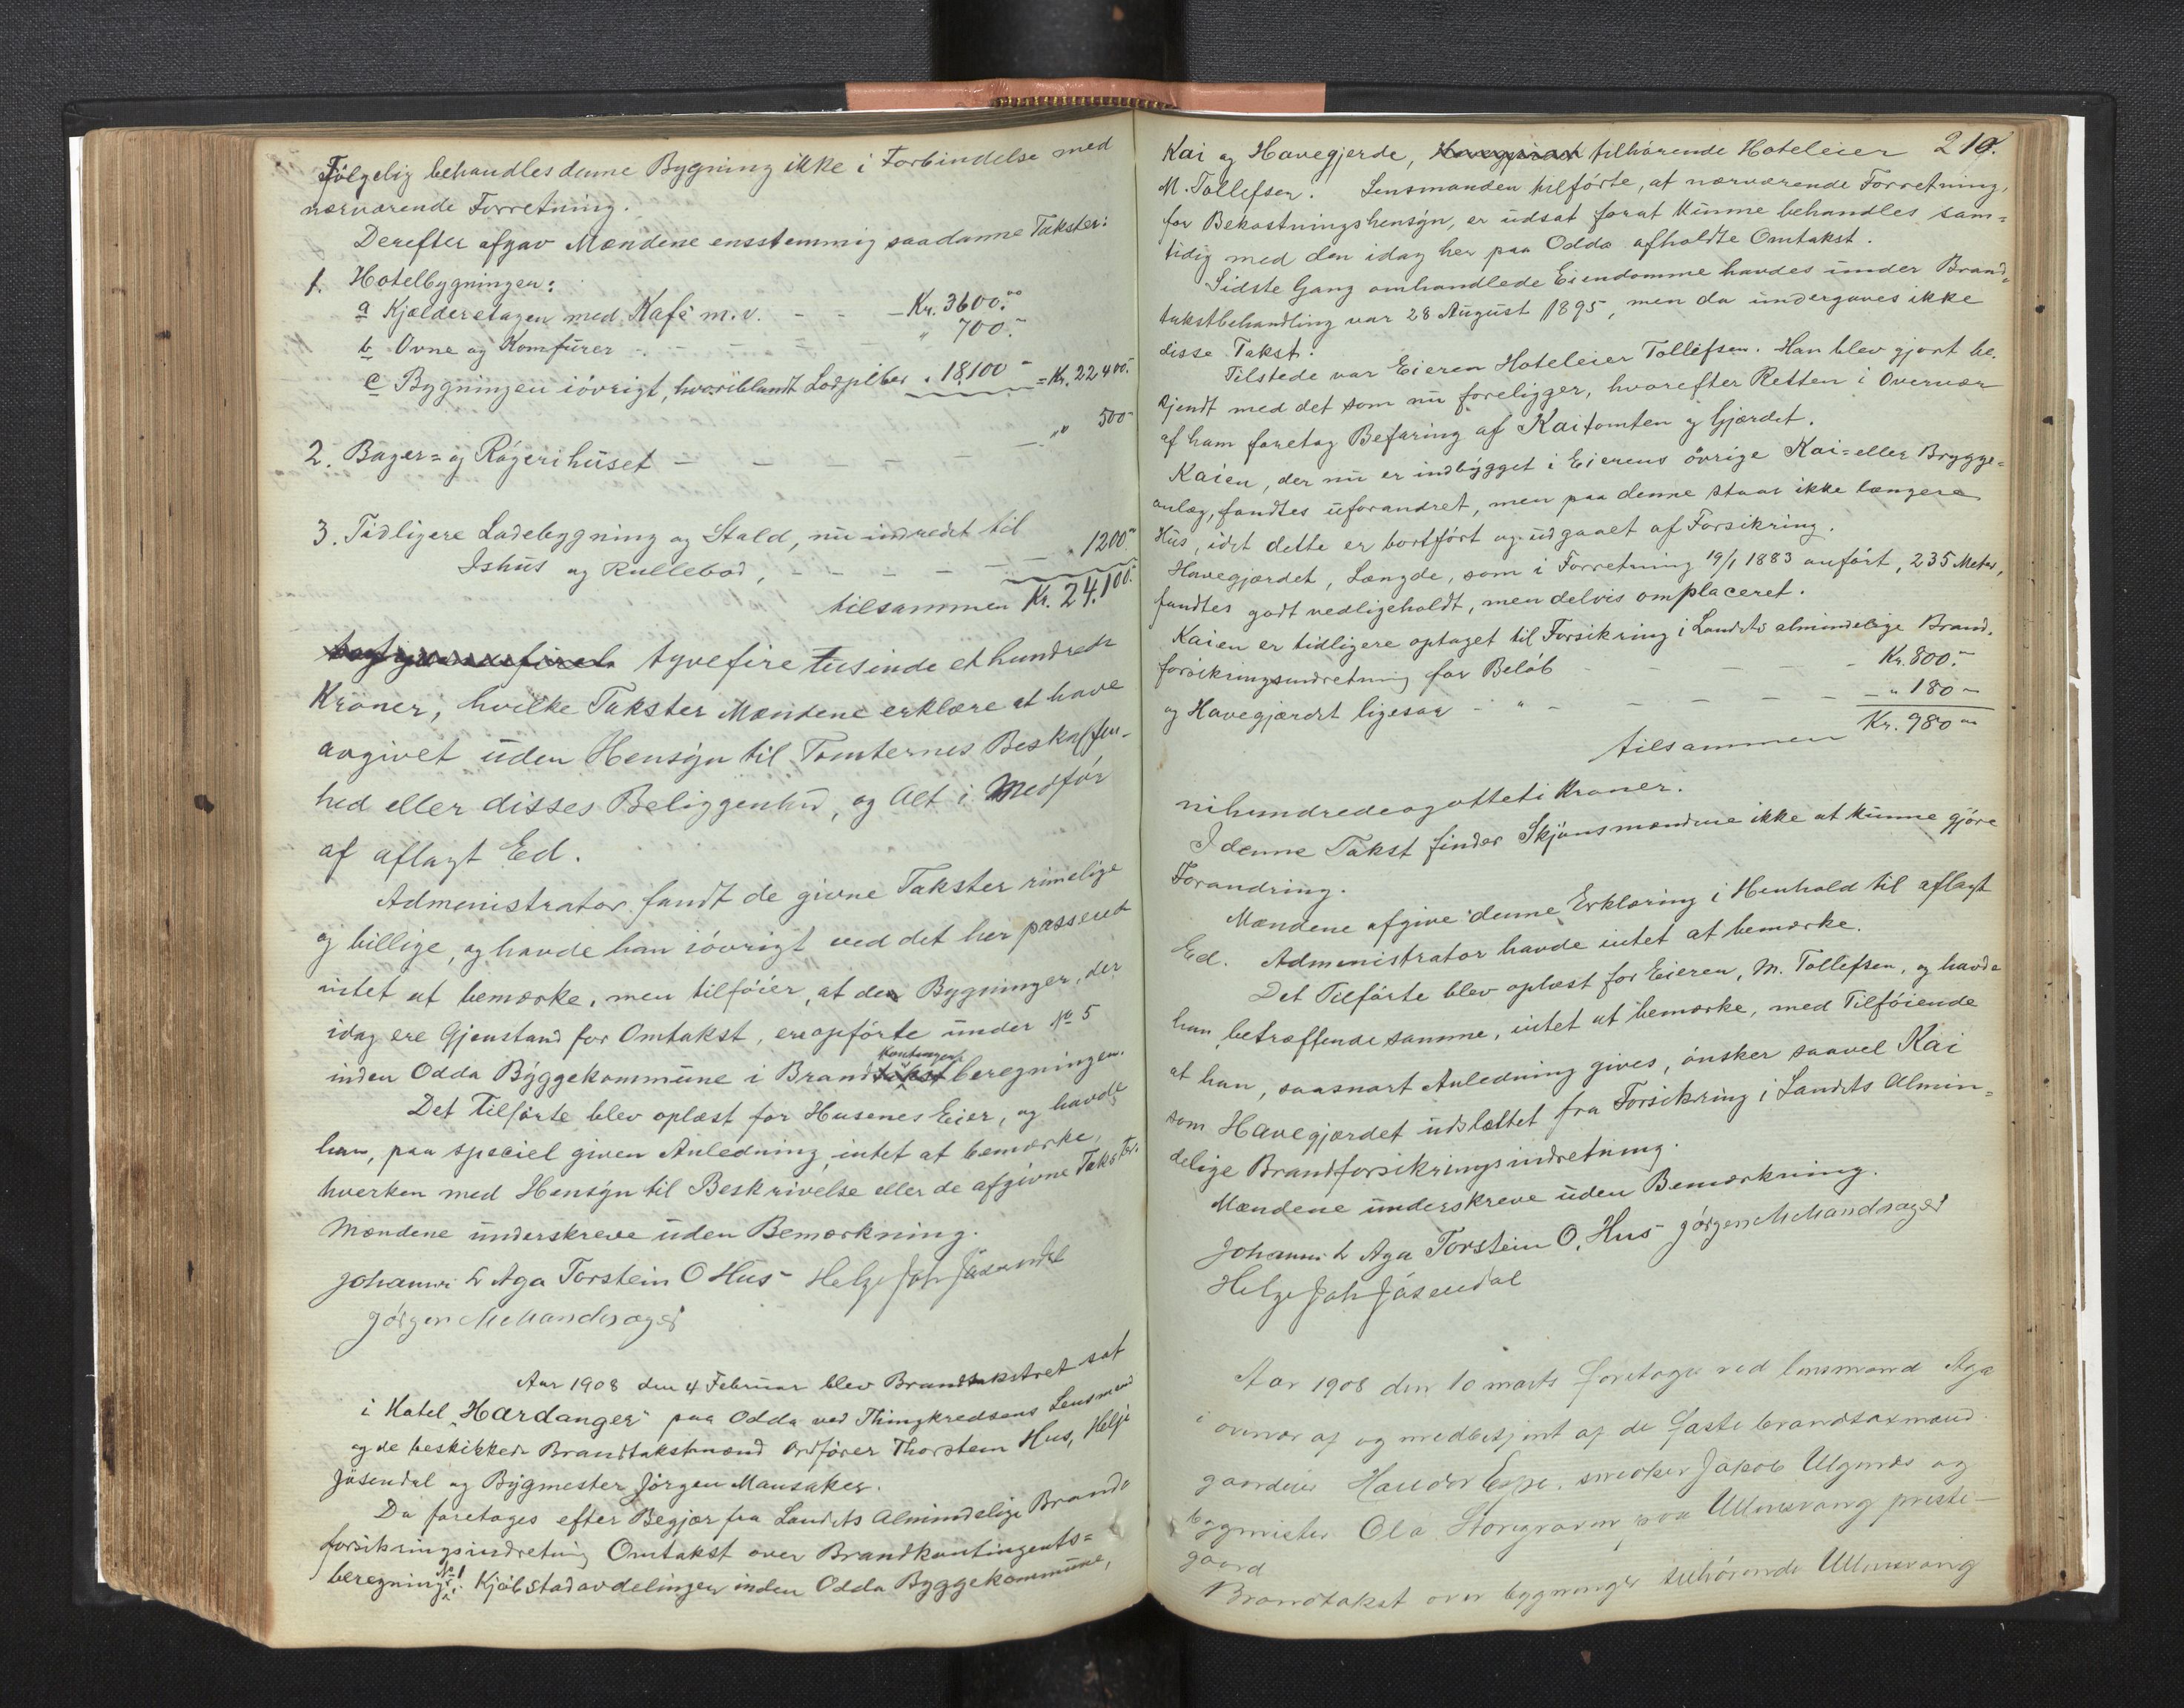 Følgelig behandles denne Bygning ikke i Forbindelse med
nærværende Forretning.
Derefter afgav Mændene ensstemmig saadanne Takster:
1. Hotelbygningen:
a Kjælderetagen med Kafé m.v. - - - Kr. 3600.00
b Ovne og Komfurer - - - - - " 700.-
c Bygningen iøvrigt, hvoriblandt Lodpiber " 18,100 - = Kr. 22,400.-
2. Bager= og Røgerihuset - - - - - - - " 500-
3. Tidligere Ladebygning og Stald, nu indredet til
Ishus og Rullebod, - - - - - - " 1200.00
tilsammen Kr. 24.100.-
tyvefire tusinde et hundrede
Kroner; hvilke Takster Mændene erklære at have
avgivet uden Hensyn til Tomternes Beskaffen-
hed eller disses Beliggenhed, og Alt i Medfør
af aflagt Ed.
Administrator fandt de givne Takster rimelige
og billige, og havde han iøvrigt ved det her passerede
intet at bemærke, men tilføier, at de Bygninger, der
idag ere Gjenstand for Omtakst, ere opførte under No 5
inden Odda Byggekommune i Brandkontingentberegningen.
Det Tilførte blev oplæst for Husenes Eier, og havde
han, paa speciel given Anledning, intet at bemærke,
hverken med Hensyn til Beskrivelse eller de afgivne Takster.
Mændene underskreve uden Bemærkning.
Johannes L Aga Torstein O Hus Helge Joh Jøsendal
Jørgen M Mandsager
Aar 1908 den 4 Februar blev Brandtakstret sat
i Hotel "Hardanger" paa Odda ved Thingkredsens Lensmand
og de beskikkede Brandtakstmænd Ordfører Thorstein Hus, Helje
Jøsendal og Bygmester Jørgen Mansaker.
Da foretages efter Begjær fra Landets Almindelige Brand-
forsikringsindretning Omtakst over Brandkontingents=
beregning No 1 i Kjøbstadavdelingen inden Odda Byggekommune,
210.
Kai og Havegjerde, tilhørende Hoteleier
M. Tollefsen. Lensmanden tilførte, at nærværende Forretning,
for Bekostningshensyn, er udsat forat kunne behandles sam=
tidig med den idag her paa Odda afholdte Omtakst.
Sidste Gang omhandlede Eiendomme havdes under Brand=
takstbehandling var 28 August 1895, men da undergaves ikke
disse Takst.
Tilstede var Eieren Hoteleier Tollefsen. Han blev gjort be-
kjendt med det som nu foreligger, hvorefter Retten i Overvær
af ham foretog Befaring af Kaitomten og Gjærdet.
Kaien, der nu er indbygget i Eierens øvrige Kai= eller Brygge=
anlæg, fandtes uforandret, men paa denne staar ikke længere
Hus, idet dette er bortført og udgaaet af Forsikring.
Havegjærdet, Længde, som i Forretning 19/1 1883 anført, 235 Meter,
fandtes godt vedligeholdt, men delvis omplaceret.
Kaien er tidligere optaget til Forsikring i Landets almindelige Brand-
forsikringsindretning for Beløb - - - - - Kr. 800.-
og Havegjærdet ligesaa - " - - - - - - " 180 -
tilsammen Kr. 980 00
nihundredeogotteti Kroner.
I denne Takst finder Skjønsmændene ikke at kunne gjøre
Forandring.
Mændene afgive denne Erklæring i Henhold til aflagt
Ed. Administrator havde intet at bemærke.
Det Tilførte blev oplæst for Eieren, M. Tollefsen, og havde
han, betræffende samme, intet at bemærke, med Tilføiende
at han, saasnart Anledning gives, ønsker saavel Kai
som Havegjærdet udslettet fra Forsikring i Landets Almin=
delige Brandforsikringsindretning.
Mændene underskreve uden Bemærkning.
Johannes L Aga Torstein O. Hus Jørgen M Mandsager
Helge Joh Jøsendal
Aar 1908 den 10 marts foretoges ved lensmand Aga
i overvær af og medbetjent af de faste brandtaxmænd
gaardeier Espe, snedker Jakob Ulgenes og
bygmester Ola paa Ullensvang preste-
gaard
Brandtakst over bygninger tilhørende Ullensvang